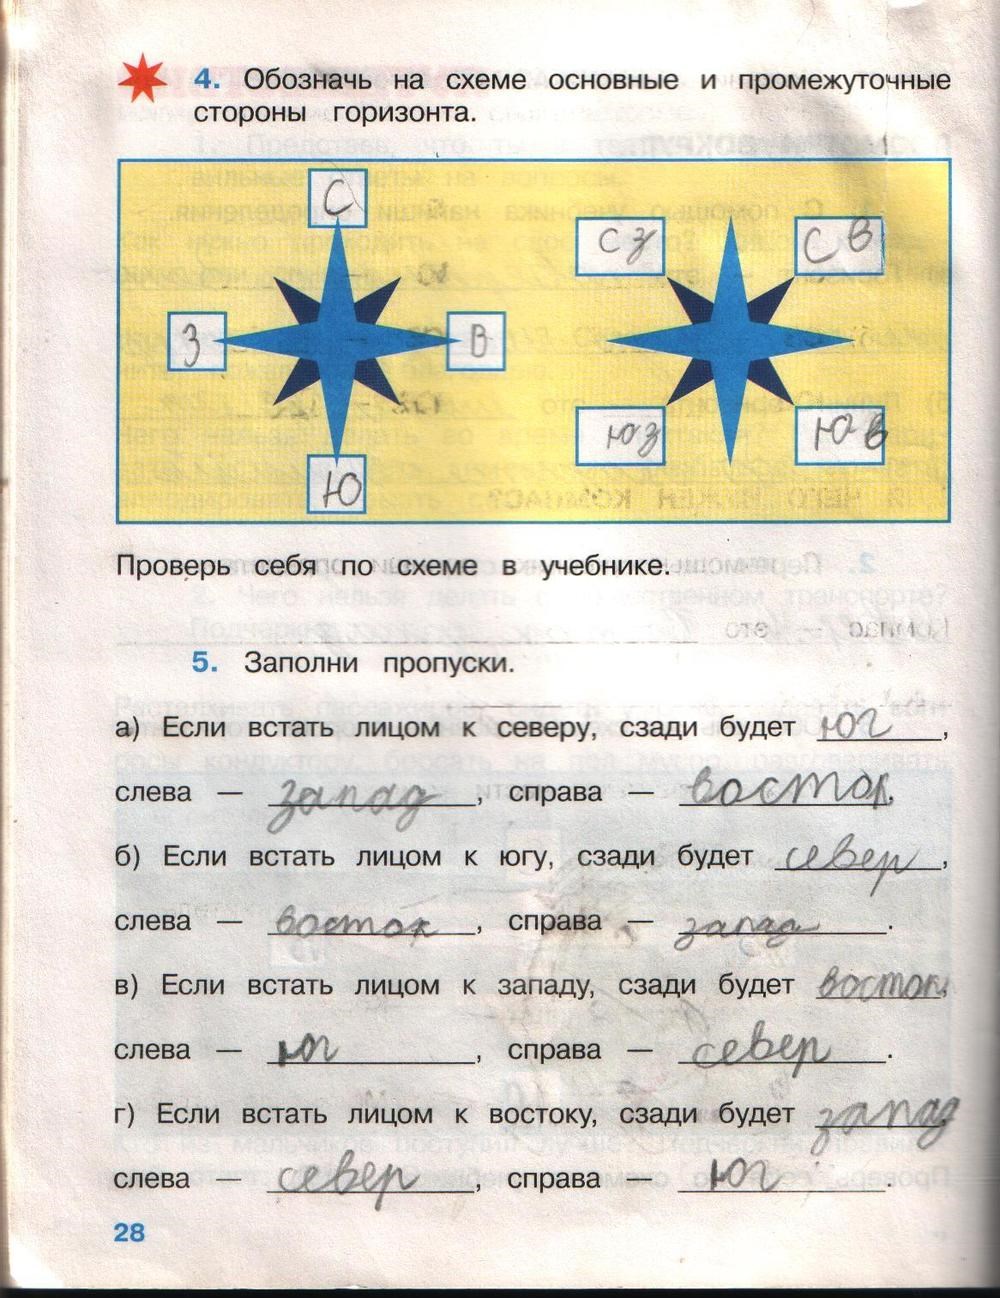 4. Обозначь на схеме основные и промежуточные
стороны горизонта.
С
З
В
Ю
СЗ
СВ
ЮЗ
ЮВ
Проверь себя по схеме в учебнике.
5. Заполни пропуски.
а) Если встать лицом к северу, сзади будет юг,
слева — запад, справа — восток.
б) Если встать лицом к югу, сзади будет север,
слева — восток, справа — запад.
в) Если встать лицом к западу, сзади будет восток,
слева — юг, справа — север.
г) Если встать лицом к востоку, сзади будет запад,
слева — север, справа — юг.
28